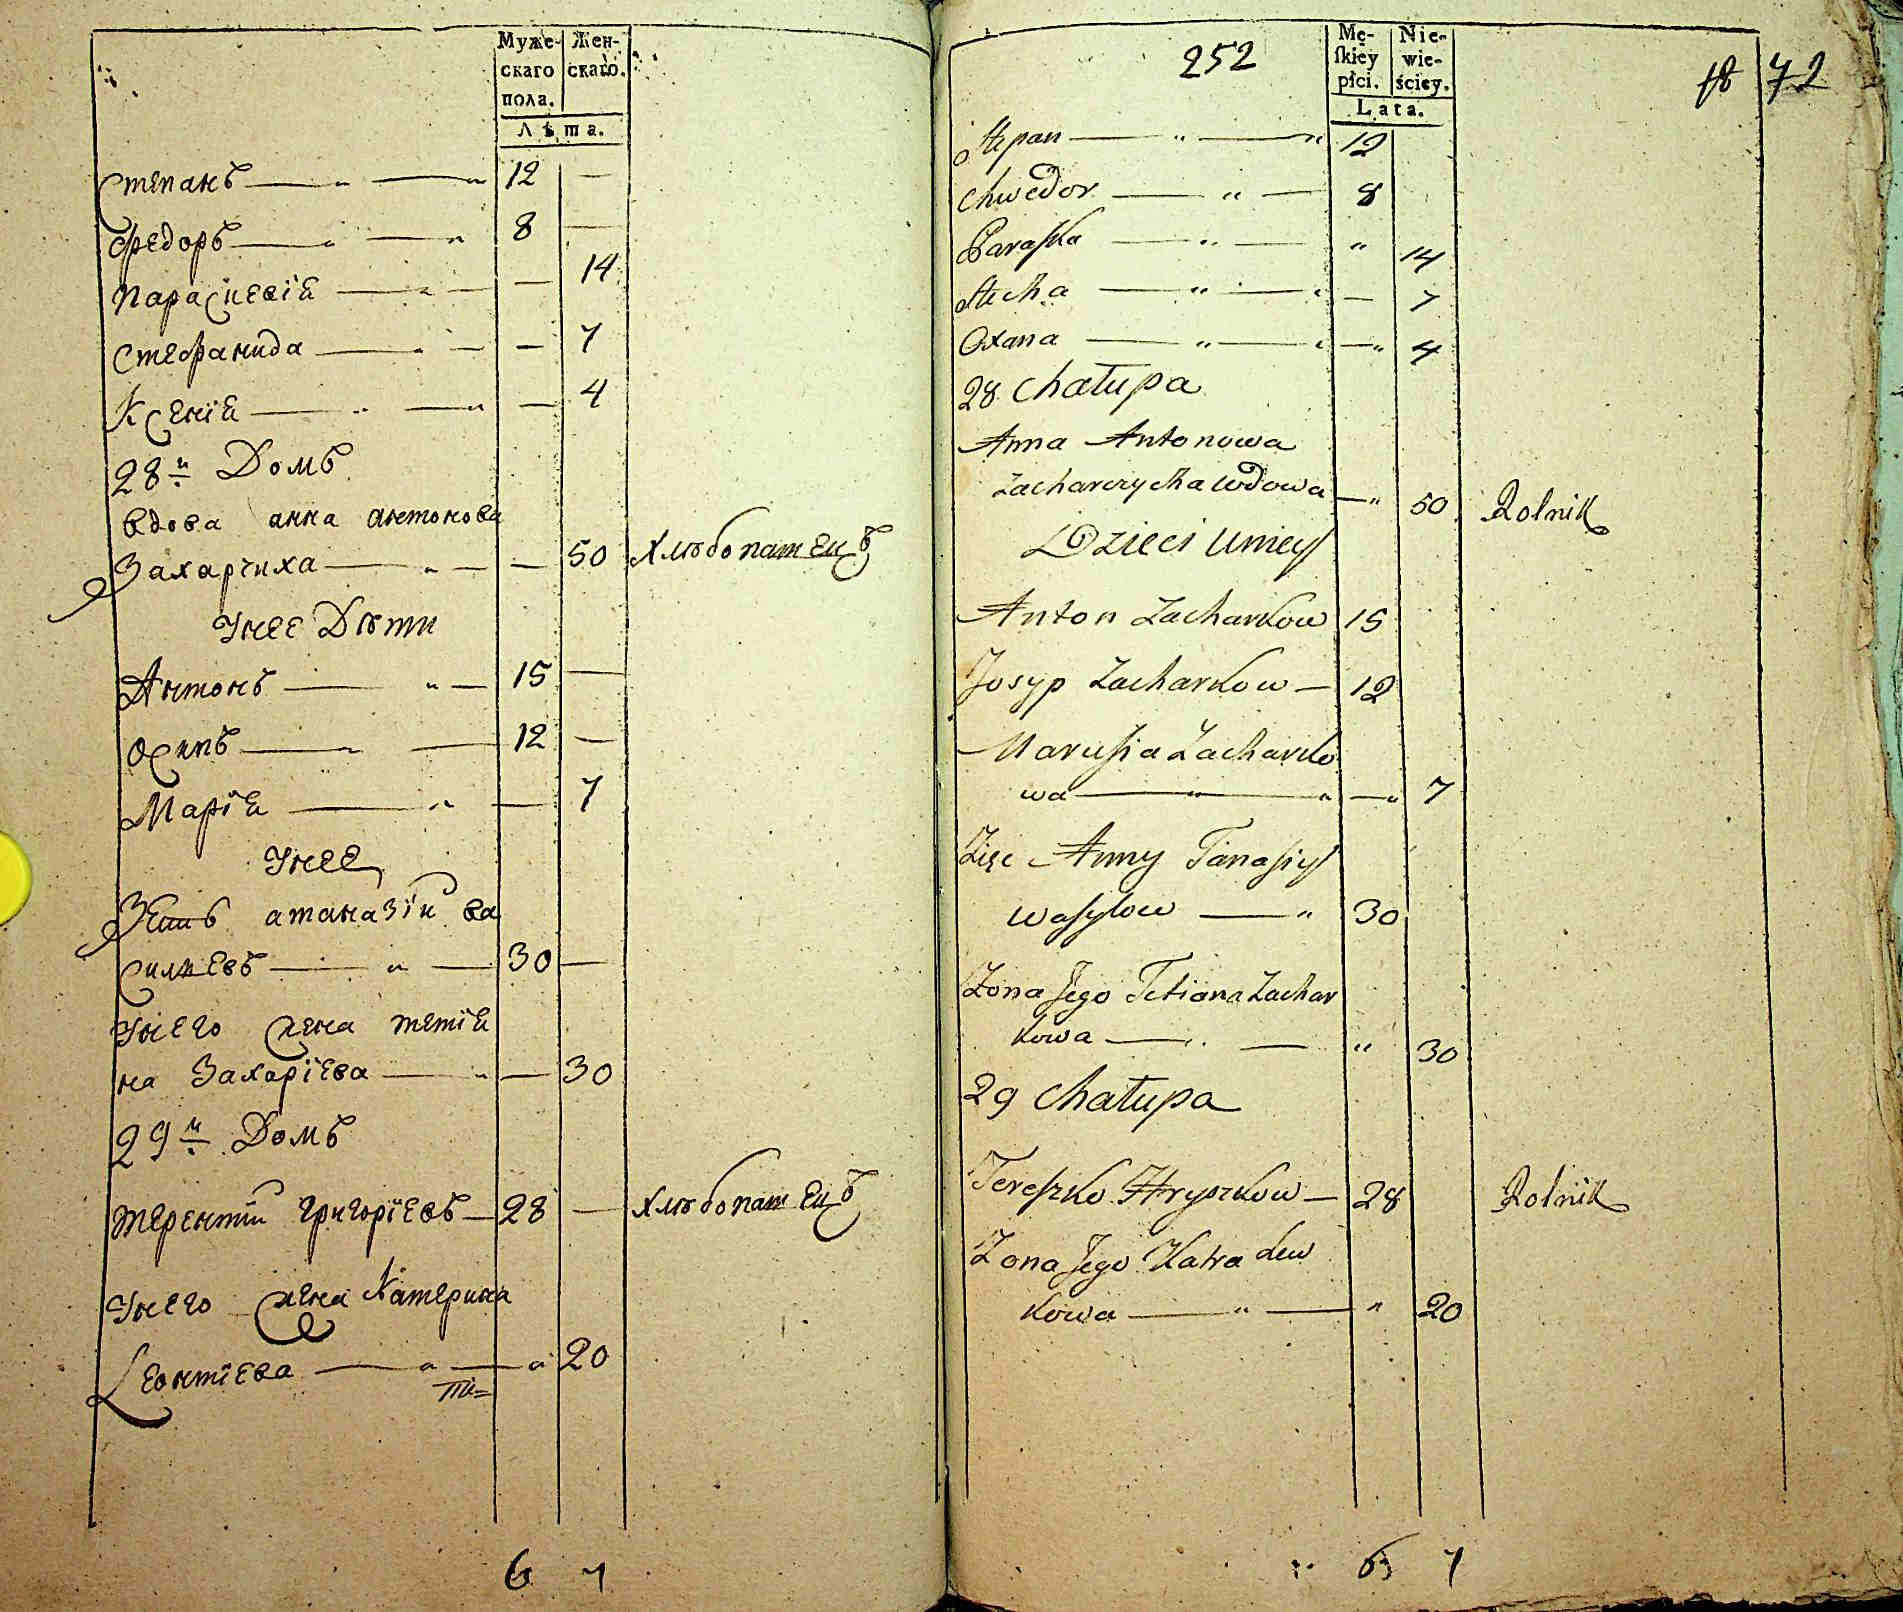 Муже-
скаго
пола.
Жен-
скаго.
Лѣта.
Степанъ 12 —
Ѳедоръ 8 —
Параскевія — 14
Стефанида — 7
Ксенія — 4
28й Домъ
вдова анна антонова
Захарчиха — 50 Хлѣбопашецъ
Унее Дѣти
Антонъ 15 —
Осипъ 12 —
Марія — 7
Унее
Зять атаназій ва
силиевъ 30 —
Унего жена тетія
на Захаріева — 30
29й Домъ
терентій григоріевъ 28 — Хлѣбопашецъ
Унего жена Катерина
Леонтіева " 20
6 7
252
Mę-
ſkiey
płci.
Nie-
wie-
ściey.
Lata.
72
Stepan 12
Chwedor 8
Paraſka " 14
Stecha — 7
Oxana — 4
28 Chałupa
Anna Antonowa
Zacharczycha wdowa — 50 Rolnik
Dzieci Unieyſ
Anton Zacharkow 15
Josyp Zacharkow 12
Maruſia Zacharko
wa — 7
Zięc Anny Tanaſiyſ
Waſylow 30
Zona Jego Tetiana Zachar
kowa " 30
29 Chałupa
Tereſzko Hryszkow 28 Rolnik
Zona Jego Katra Lew
kowa " 20
6 7